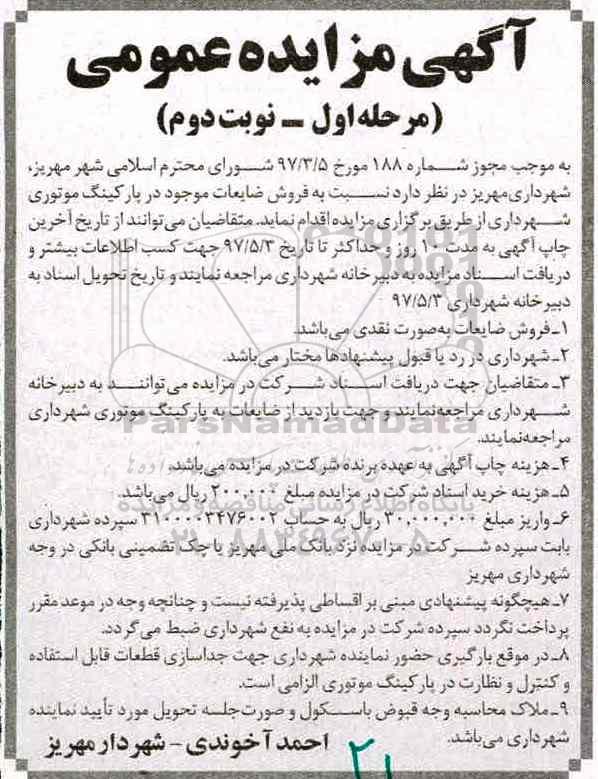 آگهی مزایده عمومی
(مرحله اول ـ نوبت دوم)
به موجب مجوز شماره ۱۸۸ مورخ ۹۷/۳/۵ شورای محترم اسلامی شهر مهریز،
شهرداری‌مهریز در نظر دارد نسبت به فروش ضایعات موجود در پارکینگ موتوری
شهرداری از طریق برگزاری مزایده اقدام نماید. متقاضیان می‌توانند از تاریخ آخرین
چاپ آگهی به مدت ۱۰ روز و حداکثر تا تاریخ ۹۷/۵/۳ جهت کسب اطلاعات بیشتر و
دریافت اسناد مزایده به دبیرخانه شهرداری مراجعه نمایند و تاریخ تحویل اسناد به
دبیرخانه شهرداری ۹۷/۵/۳
۱ـ فروش ضایعات به‌صورت نقدی می‌باشد.
۲ـ شهرداری در رد یا قبول پیشنهادها مختار می‌باشد.
۳ـ متقاضیان جهت دریافت اسناد شرکت در مزایده می‌توانند به دبیرخانه
شهرداری مراجعه‌نمایند و جهت بازدید از ضایعات به پارکینگ موتوری شهرداری
مراجعه‌نمایند.
ParsNamadData
۴ـ هزینه چاپ آگهی به عهده برنده شرکت در مزایده می‌باشد.
۵ـ هزینه خرید اسناد شرکت در مزایده مبلغ ۲۰۰,۰۰۰ ریال می‌باشد.
پایگاه اطلاع رسانی مناقصه و مزایده
۶ـ واریز مبلغ ۳۰,۰۰۰,۰۰۰ ریال به حساب ۳۱۰۰۰۰۳۴۷۶۰۰۲ سپرده شهرداری
بابت سپرده شرکت در مزایده نزد بانک ملی مهریز یا چک تضمینی بانکی در وجه
شهرداری مهریز
۷ـ هیچگونه پیشنهادی مبنی بر اقساطی پذیرفته نیست و چنانچه وجه در موعد مقرر
پرداخت نگردد سپرده شرکت در مزایده به نفع شهرداری ضبط می‌گردد.
۸ـ در موقع بارگیری حضور نماینده شهرداری جهت جداسازی قطعات قابل استفاده
و کنترل و نظارت در پارکینگ موتوری الزامی است.
۹ـ ملاک محاسبه وجه قبوض باسکول و صورت‌جلسه تحویل مورد تأیید نماینده
شهرداری می‌باشد.
احمد آخوندی - شهردار مهریز
۲۱